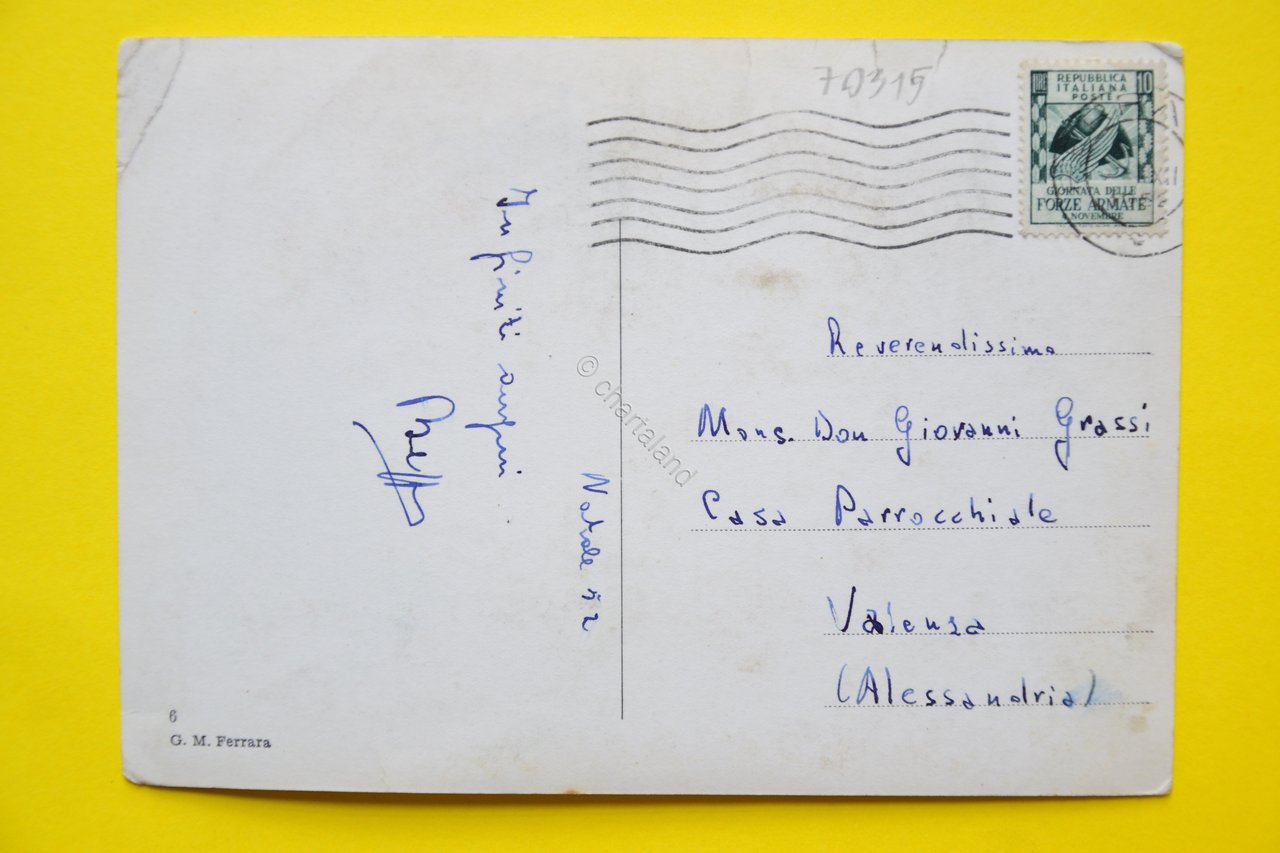 70315
LIRE 10
REPUBBLICA
ITALIANA
POSTE
GIORNATA DELLE
FORZE ARMATE
4 NOVEMBRE
Infiniti auguri
Natale 52
© chartaland
Reverendissimo
Mons. Don Giovanni Grassi
Casa Parrocchiale
Valenza
(Alessandria)
6
G. M. Ferrara